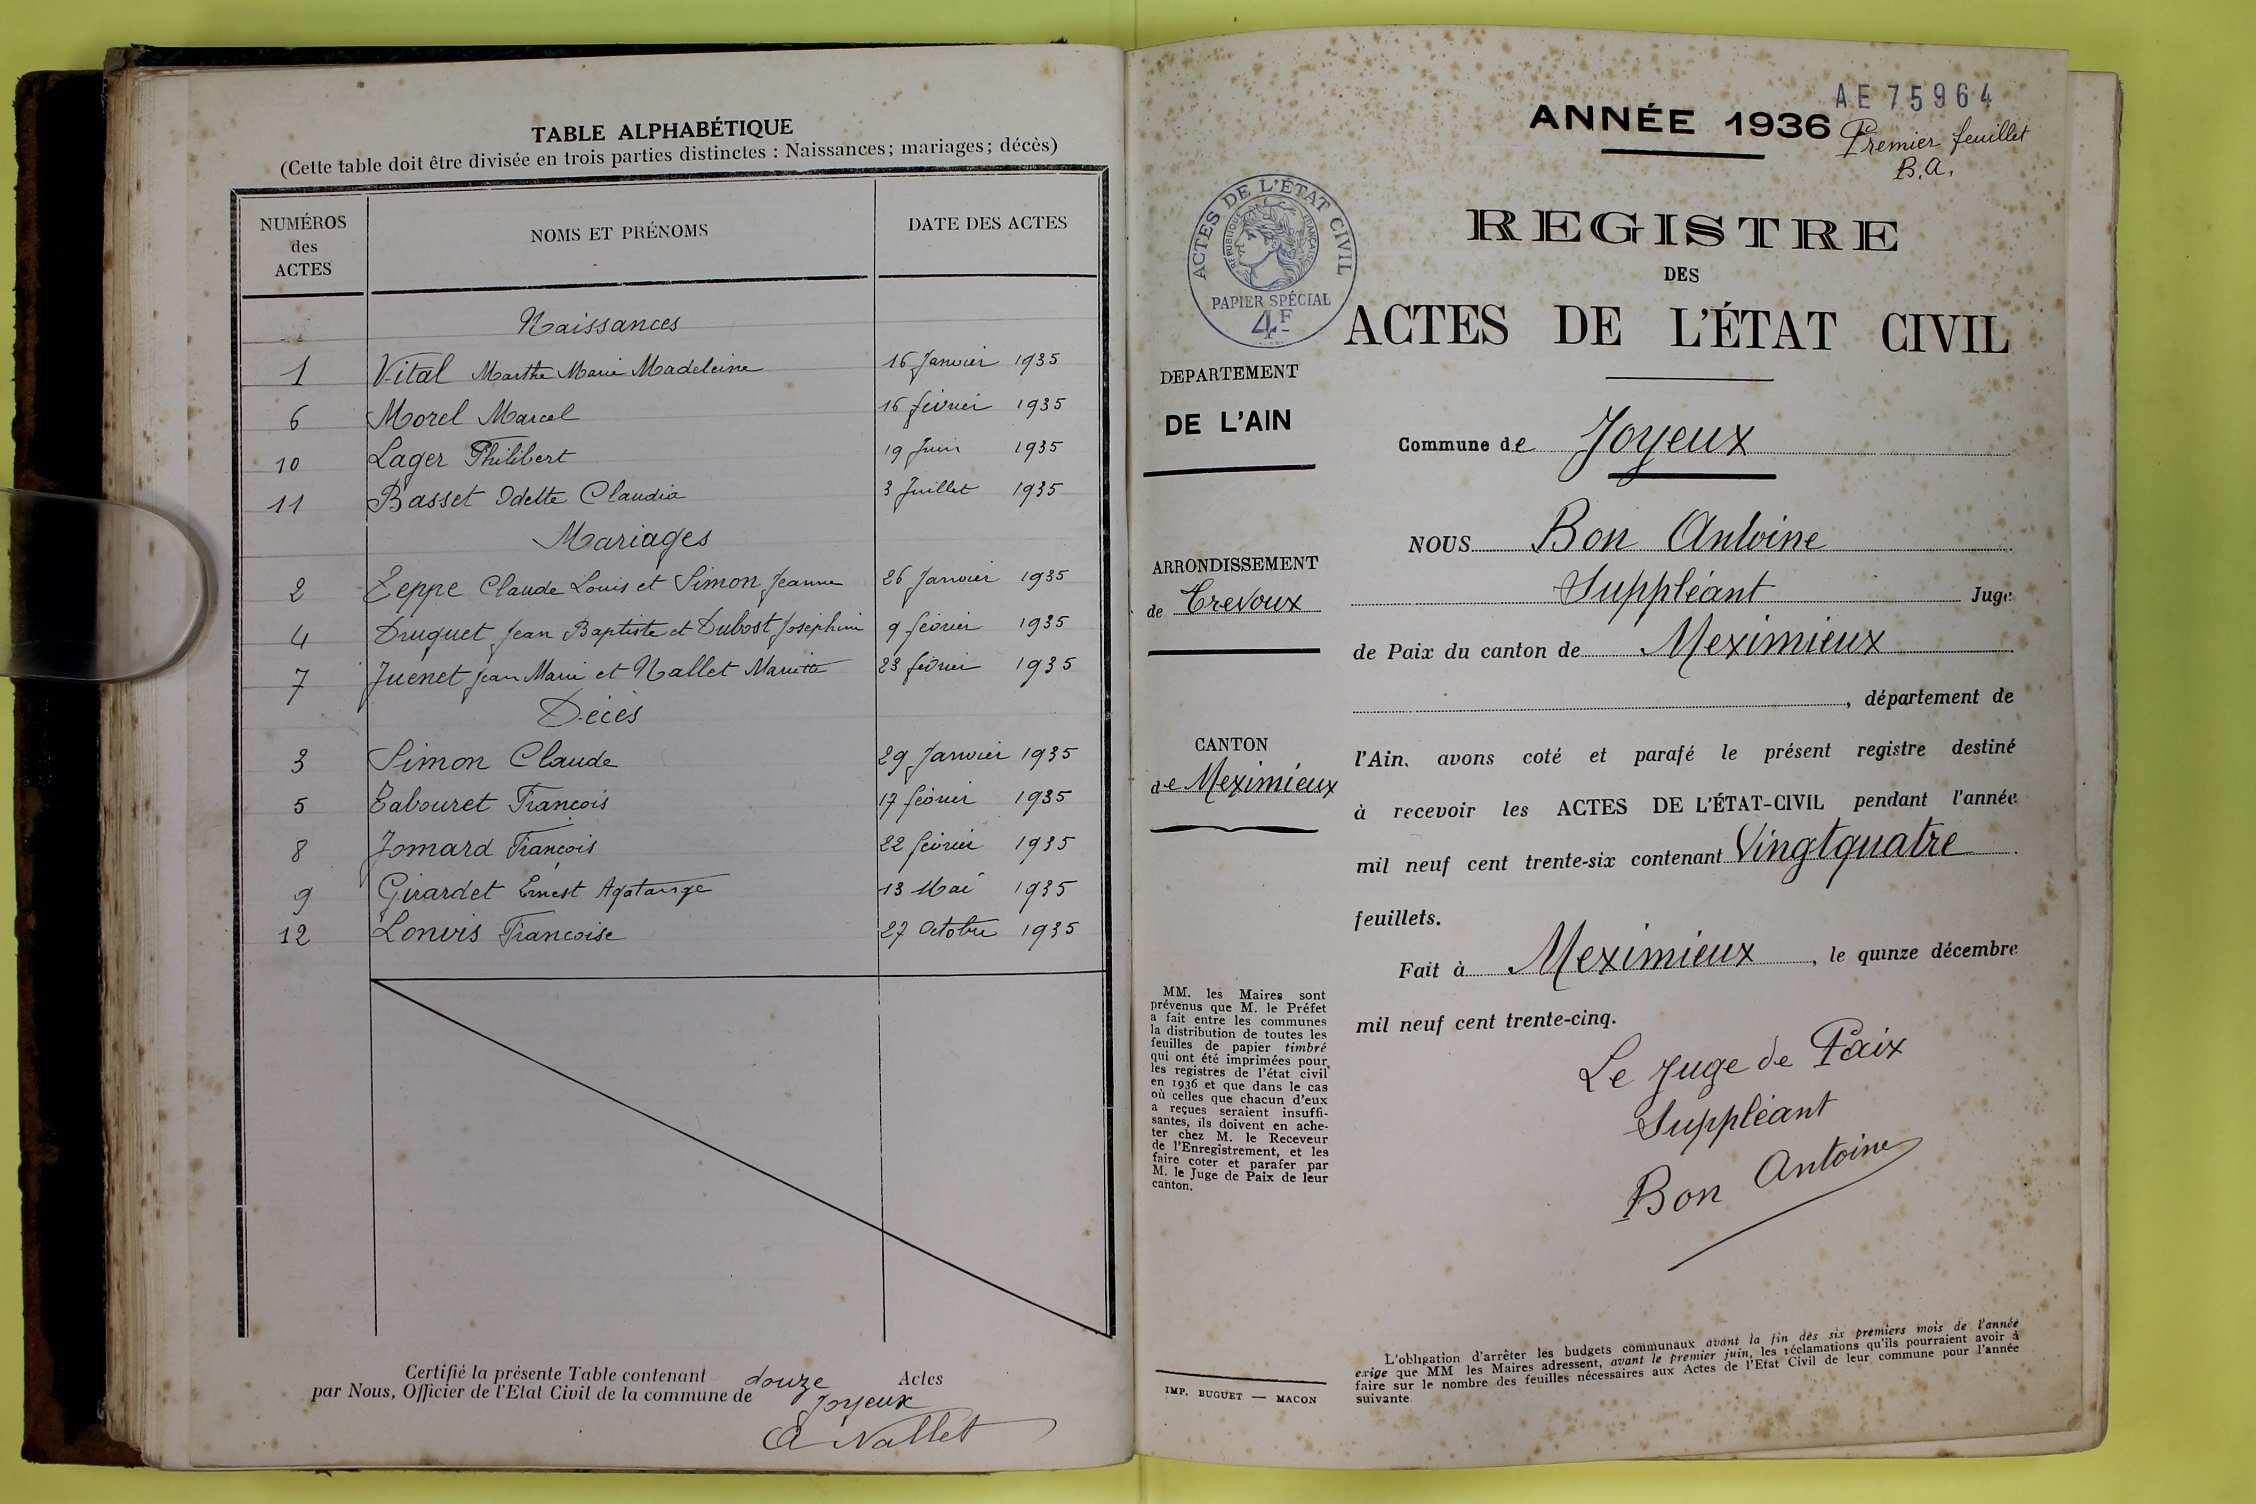 TABLE ALPHABÉTIQUE
(Cette table doit être divisée en trois parties distinctes : Naissances; mariages; décès)
NUMÉROS des ACTES
NOMS ET PRÉNOMS
DATE DES ACTES
Naissances
1 Vital Marthe Marie Madeleine 16 Janvier 1935
6 Morel Marcel 16 février 1935
10 Lager Philibert 19 Juin 1935
11 Basset Odette Claudia 3 Juillet 1935
Mariages
2 Zeppe Claude Louis et Simon Jeanne 26 Janvier 1935
4 Druguet Jean Baptiste et Dubost Joséphine 9 février 1935
7 Juenet Jean Marie et Nallet Mariette 23 février 1935
Décès
3 Simon Claude 29 Janvier 1935
5 Tabouret François 17 février 1935
8 Jomard François 22 février 1935
9 Girardet Ernest Agatange 13 Mai 1935
12 Lonvis Francoise 27 Octobre 1935
Certifié la présente Table contenant douze Actes
par Nous, Officier de l'Etat Civil de la commune de Joyeux
A Nallet
AE 75964
ANNÉE 1936
Premier feuillet
B.A.
ACTES DE L'ÉTAT CIVIL
RÉPUBLIQUE FRANÇAISE
PAPIER SPÉCIAL
4F
REGISTRE
DES
ACTES DE L'ÉTAT CIVIL
DEPARTEMENT
DE L'AIN
ARRONDISSEMENT
de Trevoux
CANTON
de Meximieux
MM. les Maires sont
prévenus que M. le Préfet
a fait entre les communes
la distribution de toutes les
feuilles de papier timbré
qui ont été imprimées pour
les registres de l'état civil
en 1936 et que dans le cas
où celles que chacun d'eux
a reçues seraient insuffi-
santes, ils doivent en ache-
ter chez M. le Receveur
de l'Enregistrement, et les
faire coter et parafer par
M. le Juge de Paix de leur
canton.
IMP. BUGUET — MACON
Commune de Joyeux
NOUS Bon Antoine
Suppléant Juge
de Paix du canton de Meximieux
, département de
l'Ain, avons coté et parafé le présent registre destiné
à recevoir les ACTES DE L'ÉTAT-CIVIL pendant l'année
mil neuf cent trente-six contenant Vingtquatre
feuillets.
Fait à Meximieux, le quinze décembre
mil neuf cent trente-cinq.
Le Juge de Paix
Suppléant
Bon Antoine
L'obligation d'arrêter les budgets communaux avant la fin des six premiers mois de l'année
exige que MM les Maires adressent, avant le premier juin, les réclamations qu'ils pourraient avoir à
faire sur le nombre des feuilles nécessaires aux Actes de l'Etat Civil de leur commune pour l'année
suivante